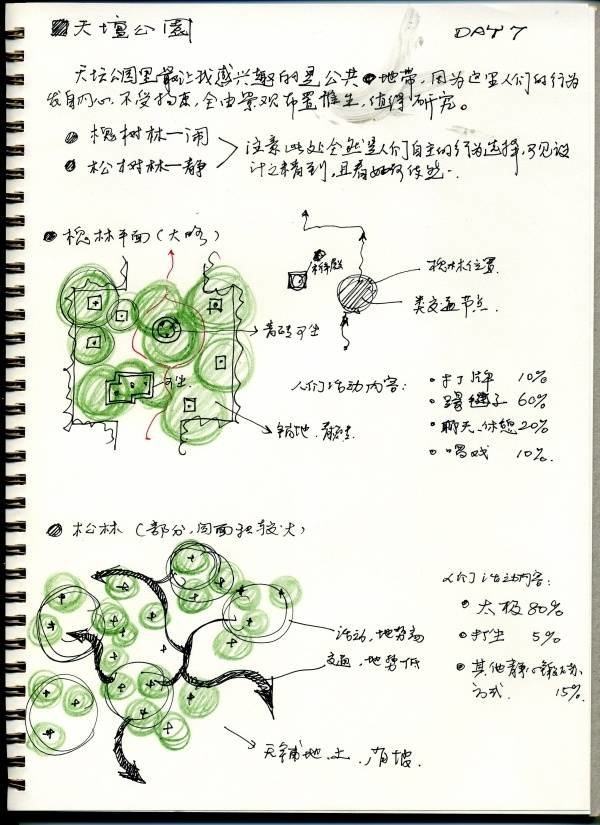 天坛公園
DAY 7
天坛公园里最让我感兴趣的是公共地带,因为这里人们的行为
发自内心,不受拘束,全由景观布置推生,值得研究。
槐树林—闹
松树林—静
注意此处全然是人们自主的行为选择,可见设
计之未看到,且看如何使然.
槐林平面(大略)
祈年殿
槐林位置.
类交通节点.
青砖可坐
可坐
铺地.青砖
人们活动内容:
打牌 10%
踢毽子 60%
聊天.休憩 20%
唱戏 10%.
松林(部分,因面积较大)
人们活动内容:
太极 80%
打坐 5%
其他静心锻炼
方式. 15%.
活动,地势高
交通,地势低
无铺地.土,有坡.